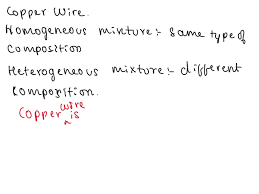 Copper Wire.
Homogeneous mixture :- same type of
composition
Heterogeneous mixture :- different
composition.
Copper wire is